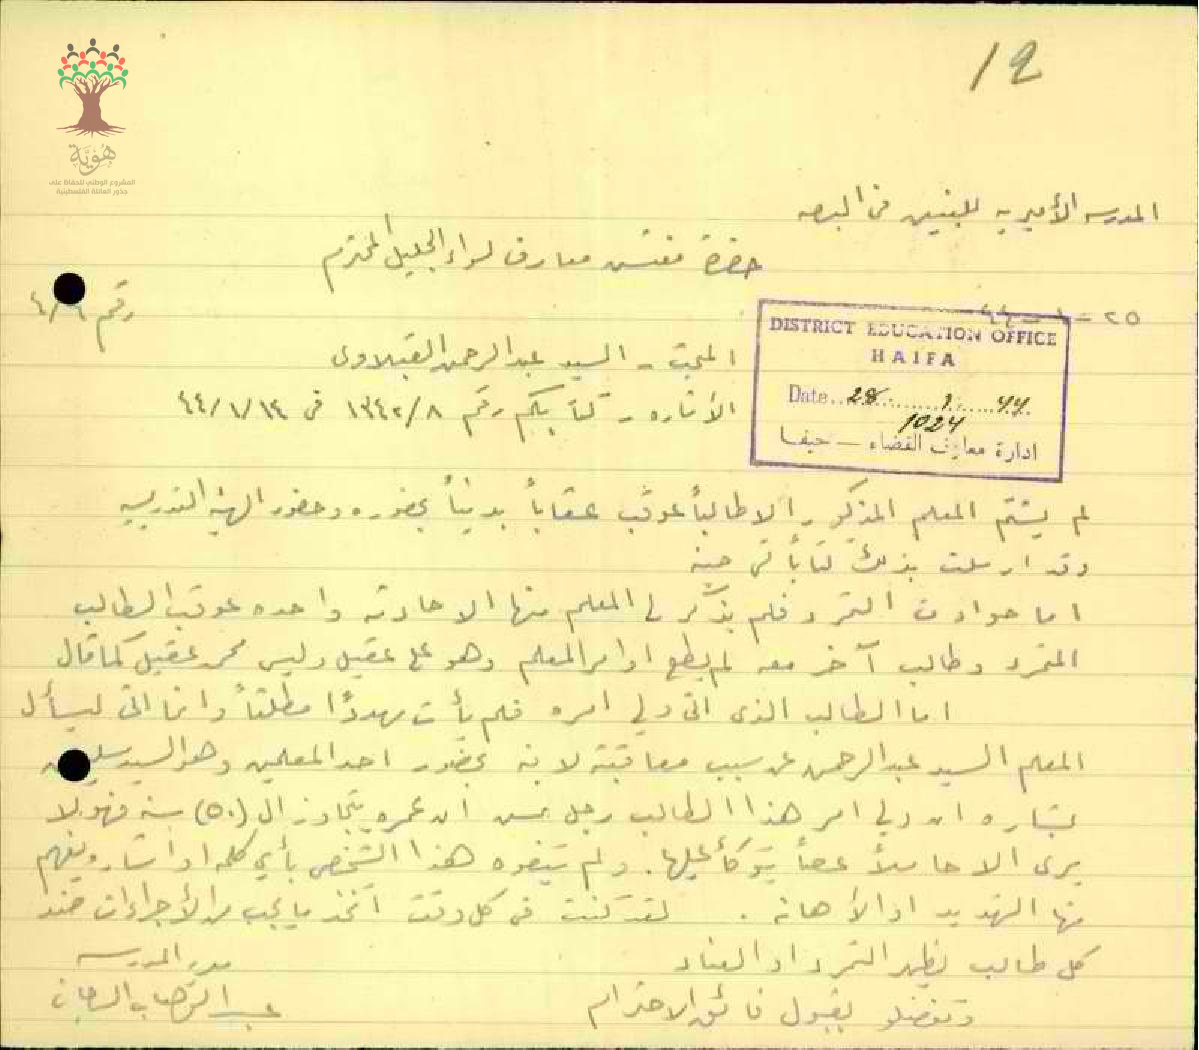 12
هُوِيَّة
المشروع الوطني للحفاظ على
جذور العائلة الفلسطينية
المدرسه الأميريه للبنين في البصه
حضرة مفتش معارف لواء الجليل المحترم
٢٥ - ١ - ٤٤
رقم ٤/
DISTRICT EDUCATION OFFICE
HAIFA
Date 28 . 1 . 44
1024
ادارة معارف القضاء — حيفا
المبحث - السيد عبدالرحمن القبلاوي
الأشاره - كتابكم رقم ١٣٤٢/٨ في ٤٤/١/١٤
لم يشتم المعلم المذكور الا طالباً عوقب عقاباً بدنياً بحضوره وحضور الهيئه التدريسيه
وقد ارسلت بذلك كتاباً في حينه
اما حوادث التمرد فلم يذكر لي المعلم منها الا حادثه واحده عوقب الطالب
المتمرد وطالب آخر معه لم يطع اوامر المعلم وهو علي عقيل وليس محمد عقيل كما قال
اما الطالب الذى اتى ولي امره فلم يأت مهدداً مطلقاً وانما اتى ليسأل
المعلم السيد عبدالرحمن عن سبب معاقبته لابنه بحضور احد المعلمين وهو السيد سليم
بشاره ان ولي امر هذا الطالب رجل مسن ان عمره يتجاوز ال (٥٠) سنه فهو لا
يرى الا حاملاً عصاً يتوكأ عليها. ولم يتفوه هذا الشخص بأي كلمه او اشاره يفهم
منها التهديد او الأهانه . لقد كنت في كل وقت اتخذ ما يجب من الأجراءات ضد
كل طالب يظهر التمرد او العناد
مدير المدرسه
وتفضلو بقبول فائق الاحترام
عبد